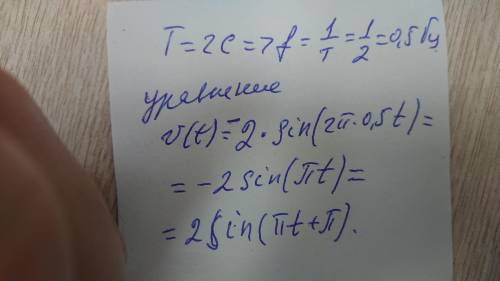 T = 2c => f = 1/T = 1/2 = 0,5 Гц
уравнение
v(t) = -2 · sin(2π · 0,5t) =
= -2 sin(πt) =
= 2 sin(πt + π).